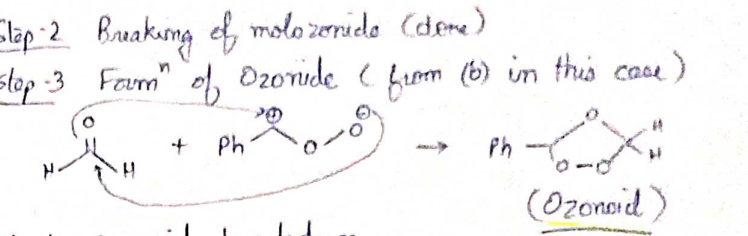 Step-2 Breaking of molozonide (done)
Step-3 Formⁿ of Ozonide (from (b) in this case)
O ⊕ ⊖
H H + Ph O O → Ph O O-O H H
(Ozonoid)